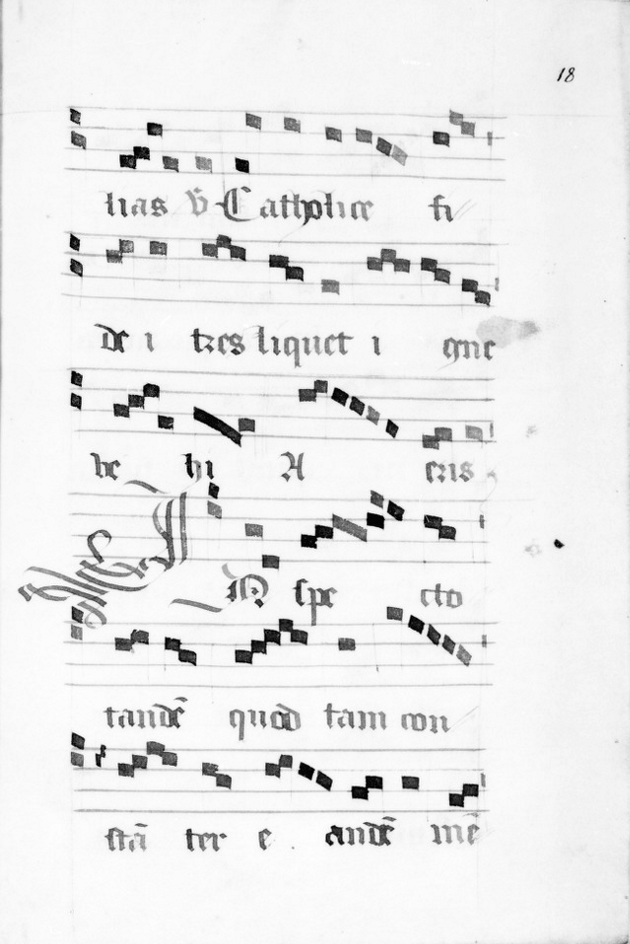 18
lias ℣ Catholice fi
de i tres liquet i gne
ve hi A eris.
In spe cto
tandē quod tam con
stā ter e andē mē